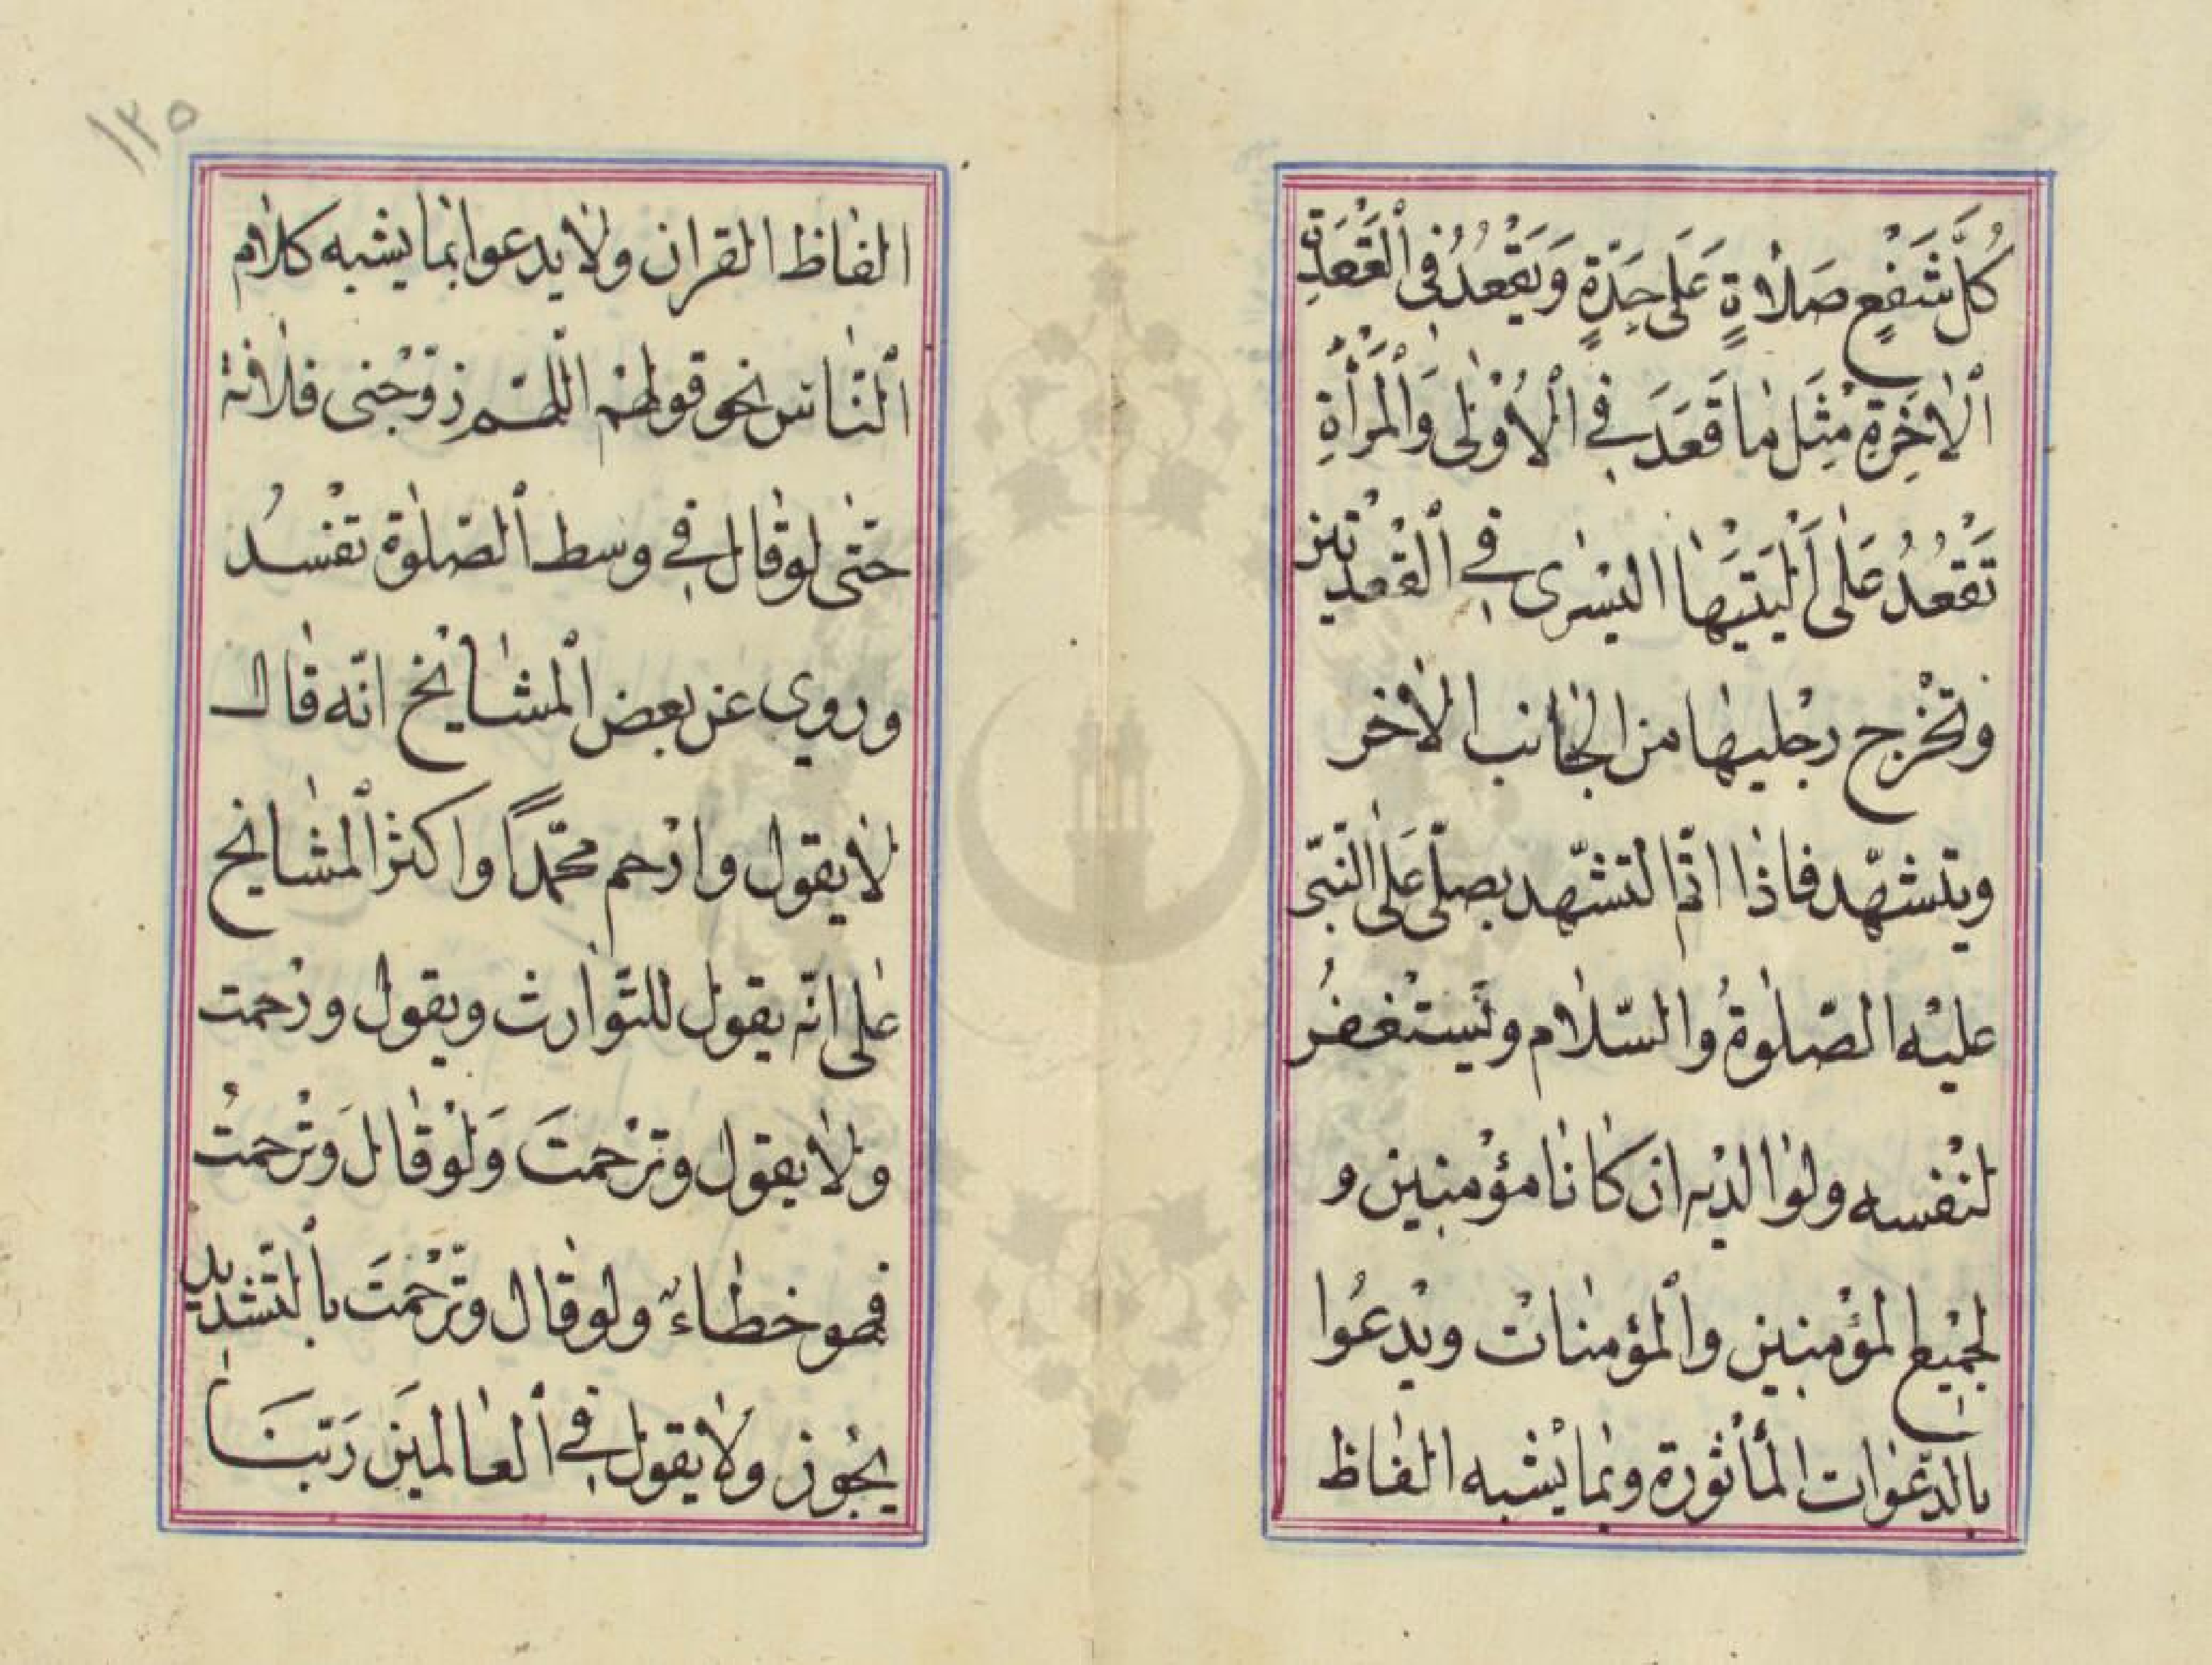 كُلَّ شَفْعٍ صَلَاةٍ عَلَى حِدَةٍ وَيَقْعُدُ فِى ٱلْقَعْدَةِ
ٱلْاٰخِرَةِ مِثْلَ مَا قَعَدَ فِي ٱلْاُوْلٰى وَالْمَرْأَةِ
تَقْعُدُ عَلٰى اَلْيَتَيْهَا اليسْرٰى في ٱلقعْدتين
وتخْرج رجْليها من الجانب الاٰخر
ويتشهّد فاذا اتمّ التشهّد يصلّى عَلَى النّبىّ
عليْه الصّلٰوةُ والسّلام ويَسْتغفرُ
لنفْسه ولوالديْه ان كانا مؤْمنين و
لجميْع المؤْمنين وٱلمؤْمنات ويدْعُوا
بالدّعوات المأْثورة وبما يُشْبه الفاظ
الفاظ القران ولا يدعوا بما يشبه كلام
ٱلنّاس نحو قولهمْ اللّهمّ زوّجْنى فلانة
حتّى لو قال في وسط ٱلصّلٰوة تفْسدُ
وروي عن بعض ٱلمشايخ انّه قال
لا يقول وارْحم محمّدًا واكثر ٱلمشايخ
على انّه يقول للتّوارث ويقول ورْحمت
ولا يقول وترْحمتَ وَلوْ قال وَترْحمتُ
فهو خطاءٌ ولو قال وترّحْمتَ بٱلتّشديد
يجُوز ولا يقول في ٱلعالمينَ رَبّنَا
١٢٥